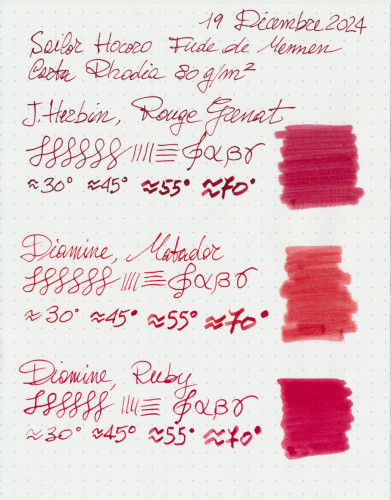 19 Dicembre 2024
Sailor Hocoro Fude de Mannen
Carta Rhodia 80 g/m²
J. Herbin, Rouge Grenat
αβγ
≈30° ≈45° ≈55° ≈70°
Diamine, Matador
αβγ
≈30° ≈45° ≈55° ≈70°
Diamine, Ruby
αβγ
≈30° ≈45° ≈55° ≈70°